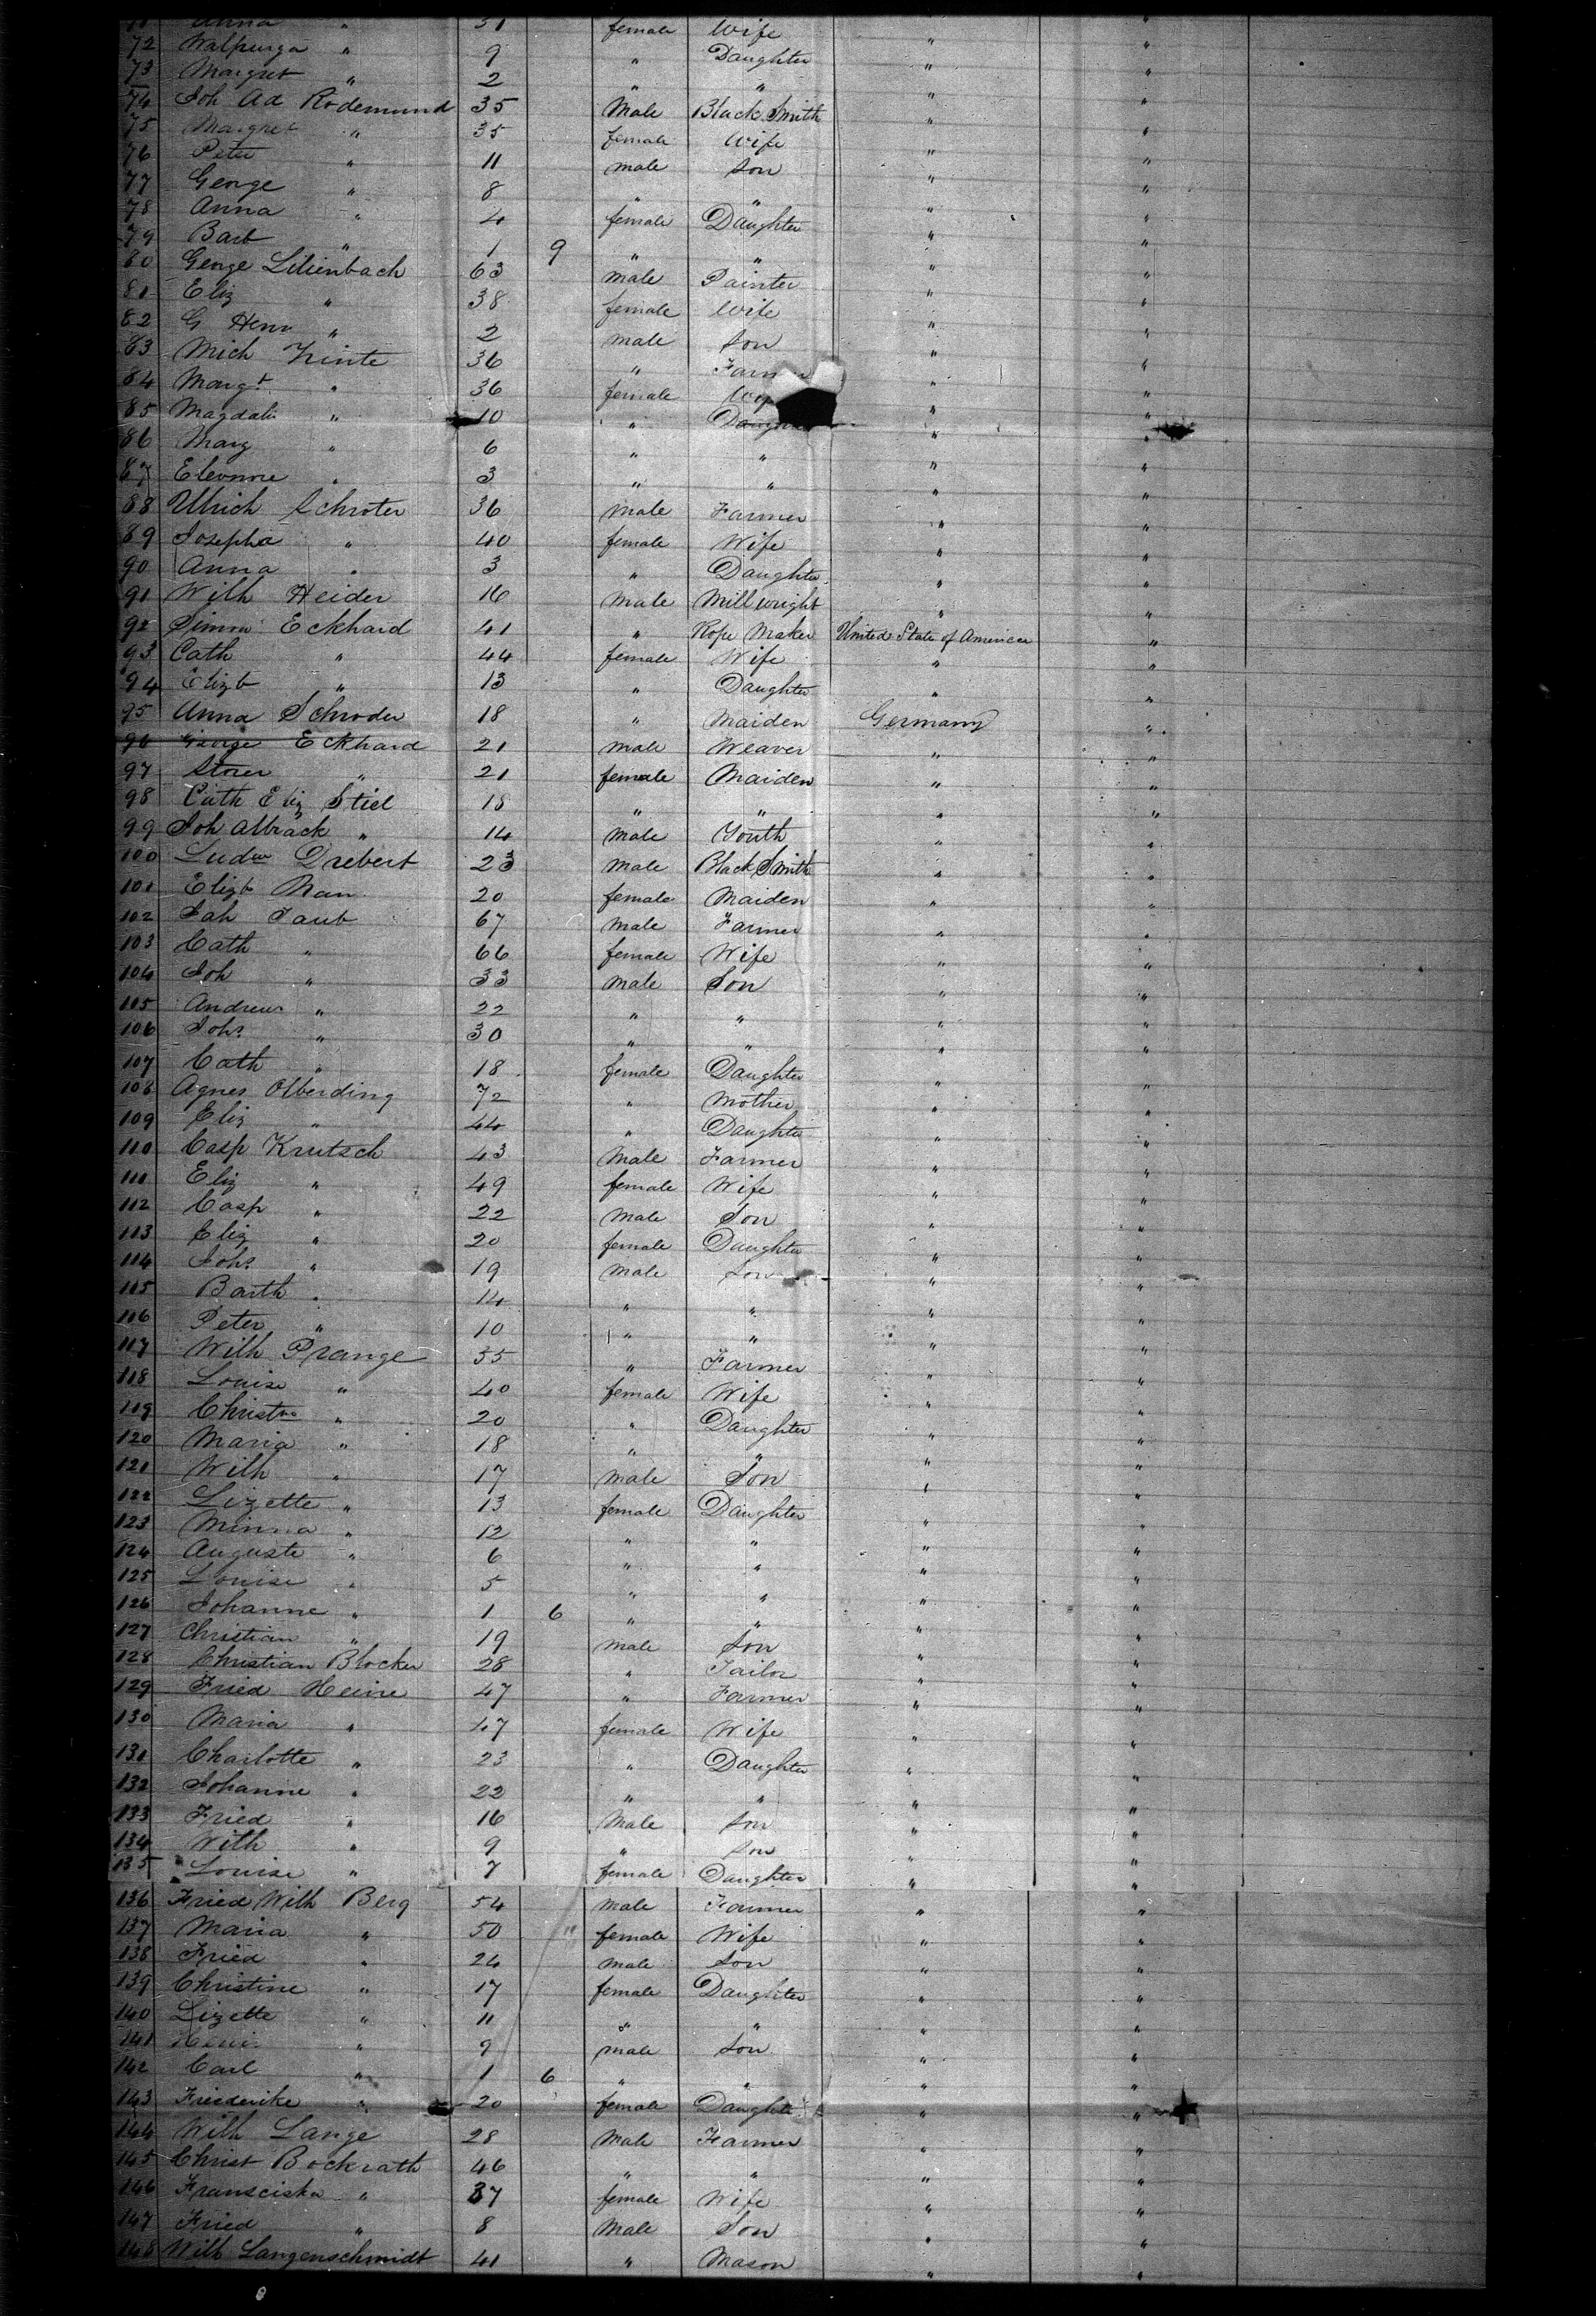 71 Anna " 31 female Wife " "
72 Walpurga " 9 " Daughter " "
73 Margret " 2 " " " "
74 Joh Ad Rodemund 35 Male Black Smith " "
75 Margret " 35 female Wife " "
76 Peter " 11 male Son " "
77 George " 8 " " " "
78 Anna " 4 female Daughter " "
79 Barb " 1 9 " " " "
80 George Lilienbach 63 male Painter " "
81 Eliz " 38 female Wife " "
82 G Henr " 2 male Son " "
83 Mich 36 " Farmer " "
84 Margt " 36 female Wife " "
85 " 10 " Daughter " "
86 Marg " 6 " " " "
87 Eleonore " 3 " " " "
88 Ulrich Schroter 36 Male Farmer " "
89 Josepha " 40 female Wife " "
90 Anna " 3 " Daughter " "
91 Wilh Heider 16 Male Mill wright " "
92 Simon Eckhard 41 " Rope Maker United State of America "
93 Cath " 44 female Wife " "
94 Elizb " 13 " Daughter " "
95 Anna Schroder 18 " Maiden Germany "
96 George Eckhard 21 male Weaver " "
97 " 21 female Maiden " "
98 Cath Eliz Stiel 18 " " " "
99 Joh " 14 Male Youth " "
100 Ludw Drebert 23 male Black Smith " "
101 Elizb Nau 20 female Maiden " "
102 Joh Taub 67 male Farmer " "
103 Cath " 66 female Wife " "
104 Joh " 33 male Son " "
105 Andreas " 22 " " " "
106 Johs " 30 " " " "
107 Cath " 18 female Daughter " "
108 Agnes Olberding 72 " Mother " "
109 Eliz " 44 " Daughter " "
110 Casp Krutsch 43 Male Farmer " "
111 Eliz " 49 female Wife " "
112 Casp " 22 Male Son " "
113 Eliz " 20 female Daughter " "
114 Johs " 19 male Son " "
115 Barth " 14 " " " "
116 Peter " 10 " " " "
117 Wilh Prange 35 " Farmer " "
118 Louise " 40 female Wife " "
119 Christne " 20 " Daughter " "
120 Maria " 18 " " " "
121 Wilh " 17 male Son " "
122 Lizette " 13 female Daughter " "
123 Minna " 12 " " " "
124 Auguste " 6 " " " "
125 Louise " 5 " " " "
126 Johanne " 1 6 " " " "
127 Christian " 19 male Son " "
128 Christian Blocker 28 " Tailor " "
129 Fried Heine 47 " Farmer " "
130 Maria " 47 female Wife " "
131 Charlotte " 23 " Daughter " "
132 Johanne " 22 " " " "
133 Fried " 16 Male Son " "
134 Wilh " 9 " Son " "
135 Louise " 7 female Daughter " "
136 Fried Wilh Berg 54 male Farmer " "
137 Maria " 50 female Wife " "
138 Fried " 24 male Son " "
139 Christine " 17 female Daughter " "
140 Lizette " 11 " " " "
141 Henr " 9 male Son " "
142 Carl " 1 6 " " " "
143 Friederike " 20 female Daughter " "
144 Wilh Lange 28 Male Farmer " "
145 Christ Bockrath 46 " " " "
146 Fransciska " 37 female Wife " "
147 Fried " 8 Male Son " "
148 Wilh Langenschmidt 41 " Mason " "